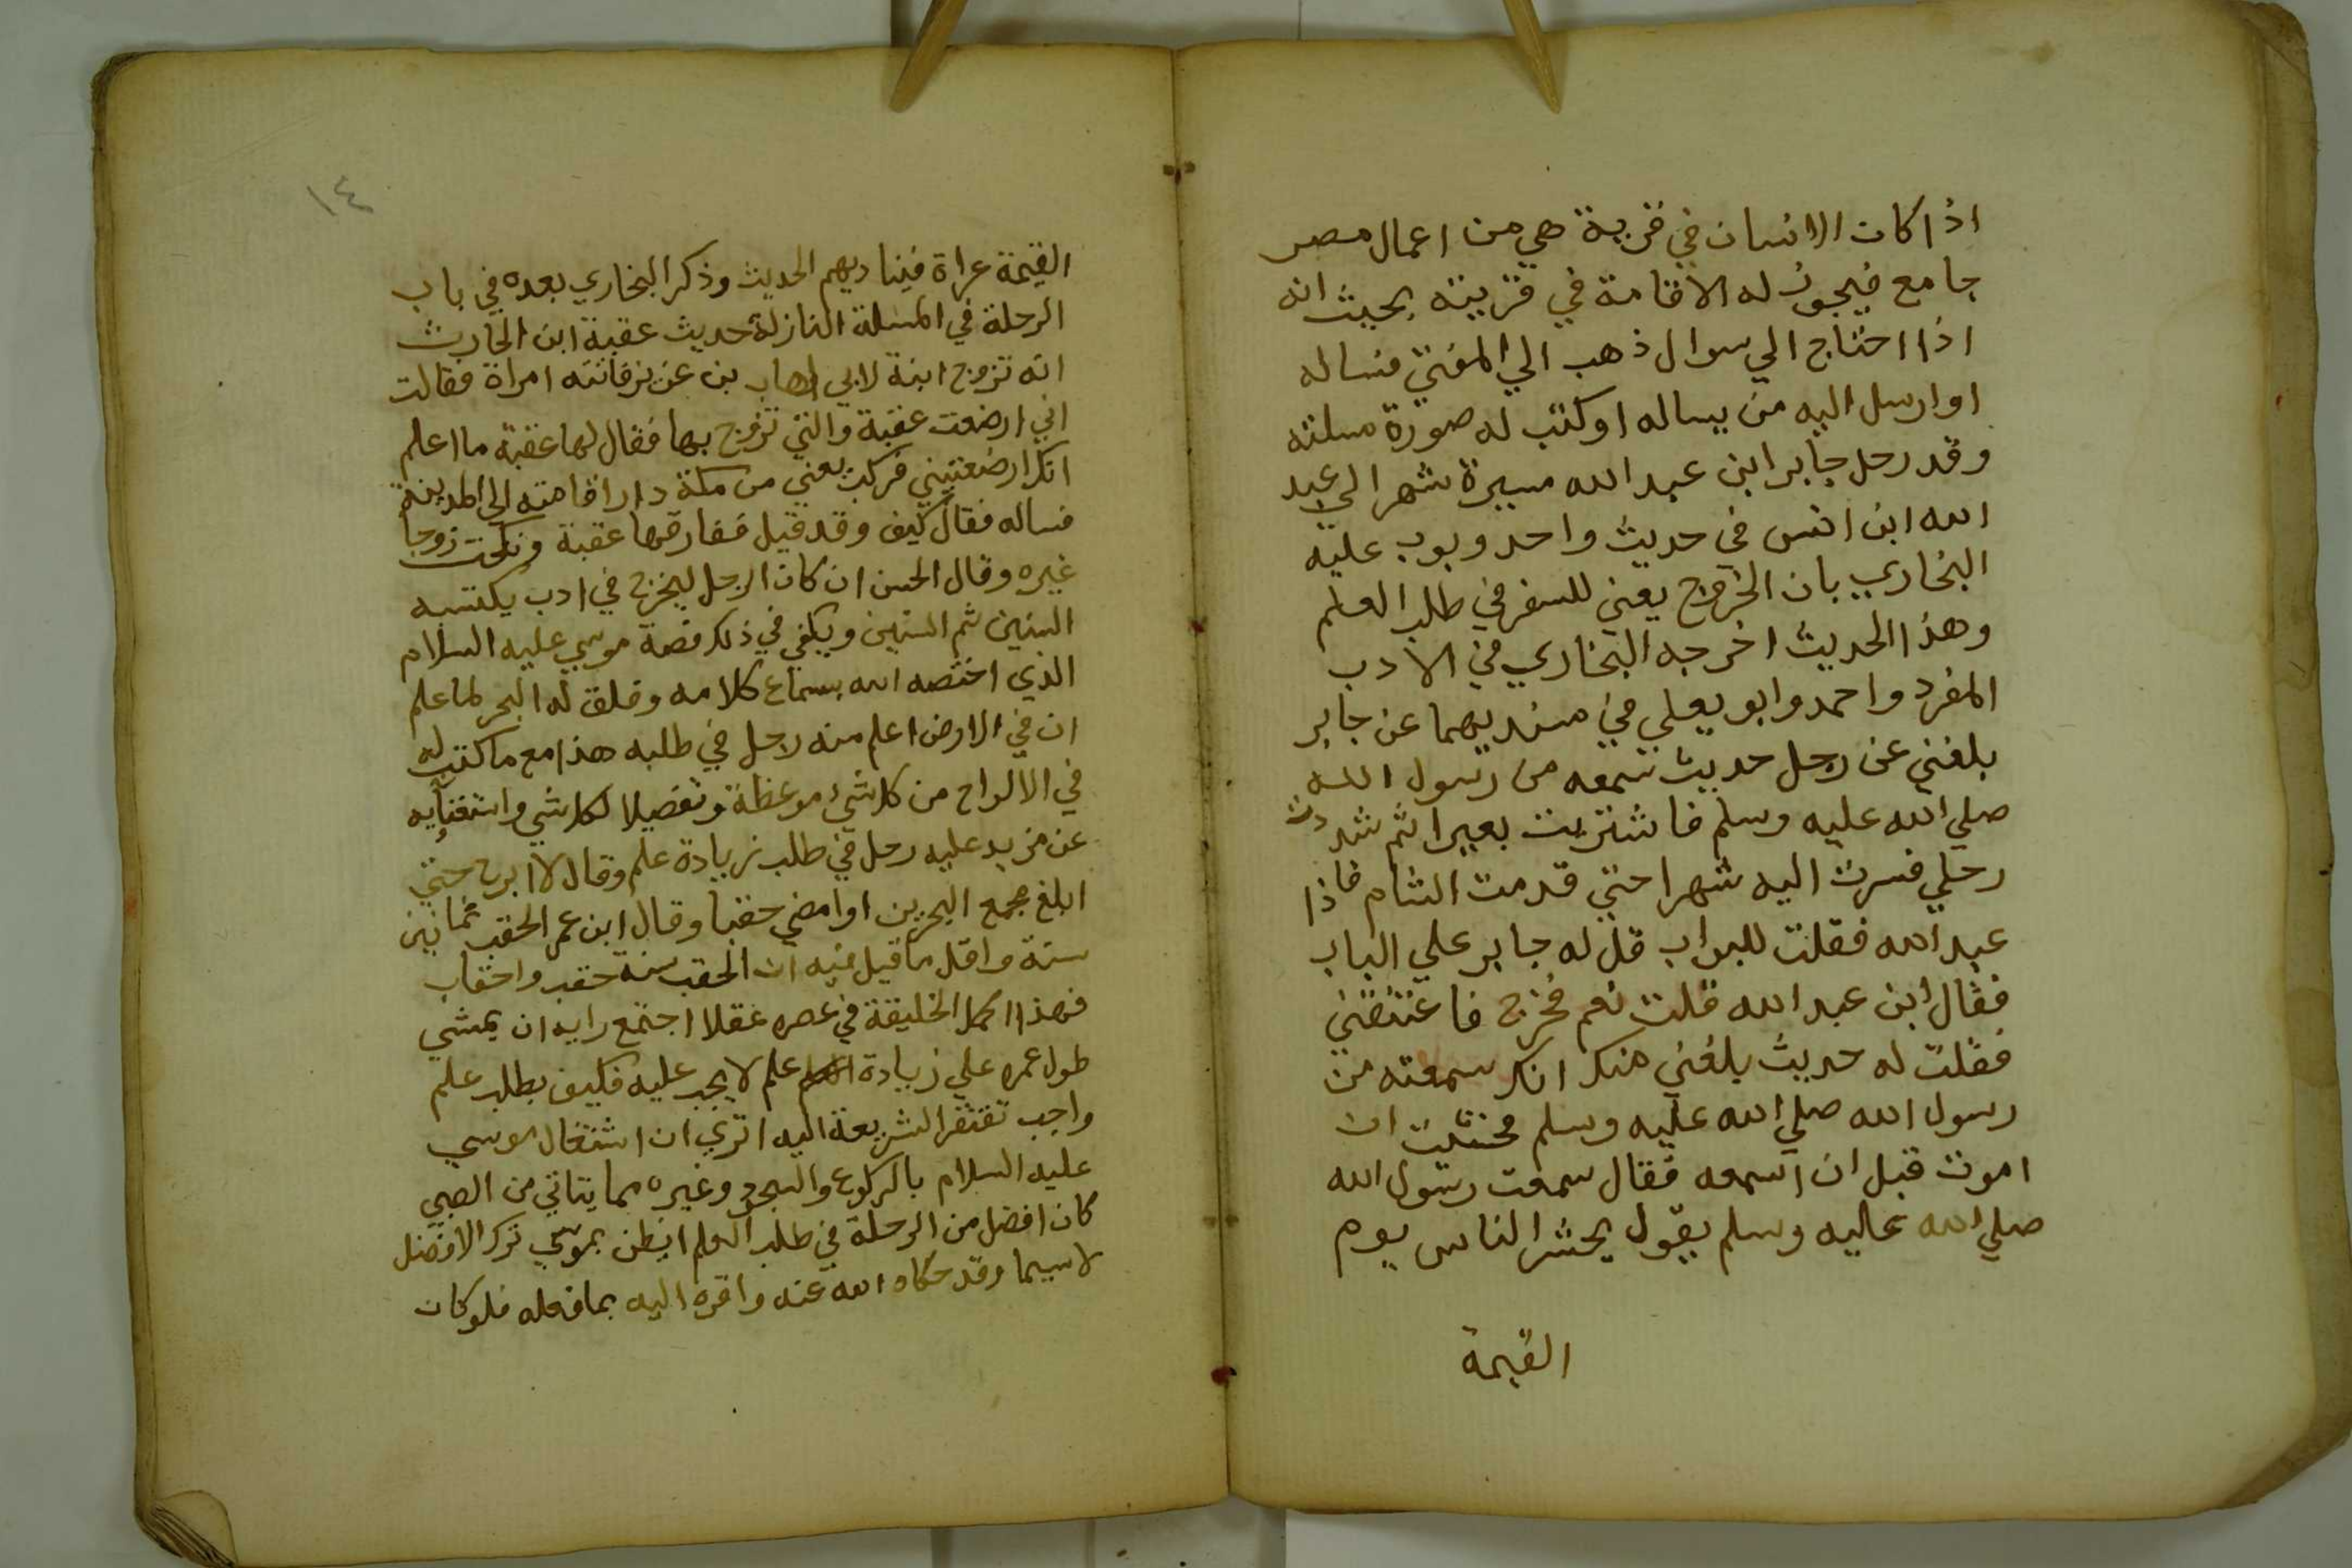 اذا كان الانسان في قرية هي من اعمال مصر
جامع فيجوز له الاقامة في قريته بحيث انه
اذا احتاج الي سوال ذهب الي المفتي فساله
او ارسل اليه من يساله او كتب له صورة مسلته
وقد رحل جابر ابن عبد الله مسيرة شهر الي عبد
الله ابن انس في حديث واحد وبوب عليه
البخاري بان الخروج يعني للسفر في طلب العلم
وهذا الحديث اخرجه البخاري في الادب
المفرد واحمد وابو يعلي في مسنديهما عن جابر
بلغني عن رجل حديث سمعه من رسول الله
صلي الله عليه وسلم فاشتريت بعيرا ثم شددت
رحلي فسرت اليه شهرا حتي قدمت الشام فاذا
عبد الله فقلت للبواب قل له جابر علي الباب
فقال ابن عبد الله قلت نعم فخرج فاعتنقني
فقلت له حديث بلغني منك انك سمعته من
رسول الله صلي الله عليه وسلم فخشيت ان
اموت قبل ان اسمعه فقال سمعت رسول الله
صلي الله عليه وسلم يقول يحشر الناس يوم
القيمة
١٤
القيمة عراة فيناديهم الحديث وذكر البخاري بعده في باب
الرحلة في المسلة النازلة حديث عقبة ابن الحارث
انه تزوج ابنة لابي اهاب بن عزيز فاتته امراة فقالت
اني ارضعت عقبة والتي تزوج بها فقال لها عقبة ما اعلم
انك ارضعتيني فركب يعني من مكة دار اقامته الي المدينة
فساله فقال كيف وقد قيل ففارقها عقبة ونكحت زوجا
غيره وقال الحسن ان كان الرجل ليخرج في ادب يكتسبه
السنين ثم السنين ويكفي في ذلك قصة موسي عليه السلام
الذي اختصه الله بسماع كلامه وفلق له البحر لما علم
ان في الارض اعلم منه رحل في طلبه هذا مع ما كتب له
في الالواح من كل شيء موعظة وتفصيلا لكل شي واستغنايه
عن مزيد عليه رحل في طلب زيادة علم وقال لا ابرح حتي
ابلغ مجمع البحرين او امضي حقبا وقال ابن عمر الحقب ثمانين
سنة واقل ما قيل فيه ان الحقب سنة حقب واحقاب
فهذا اكمل الخليقة في عصره عقلا اجتمع رايه ان يمشي
طول عمره علي زيادة علم لا يجب عليه فكيف بطلب علم
واجب تفتقر الشريعة اليه اتري ان اشتغال موسي
عليه السلام بالركوع والسجود وغيره مما يتاتي من الصبي
كان افضل من الرحلة في طلب العلم ايظن بموسي ترك الافضل
لا سيما وقد حكاه الله عنه واقره اليه بما فعله فلو كان